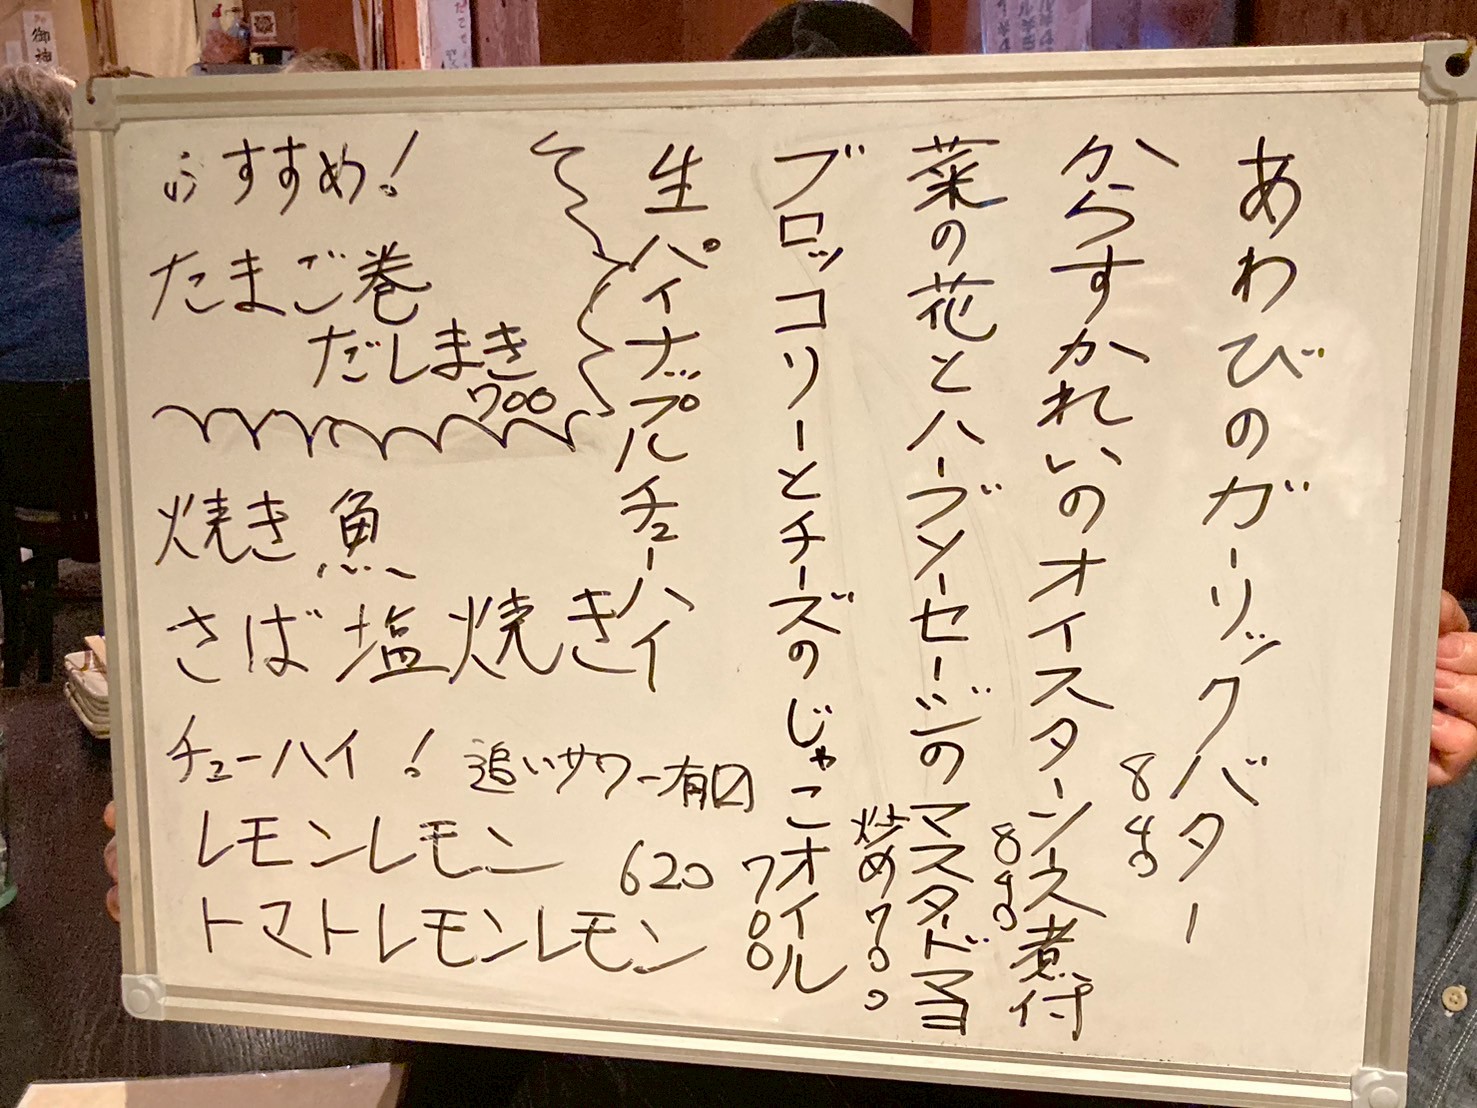 あわびのガーリックバター
840
からすかれいのオイスターソース煮付
840
菜の花とハーブソーセージのマスタードマヨ
炒め700
ブロッコリーとチーズのじゃこオイル
700
生パイナップルチューハイ
おすすめ!
たまご巻
だしまき
700
焼き魚
さば塩焼き
チューハイ!
追いサワー有図
レモンレモン 620
トマトレモンレモン
御神